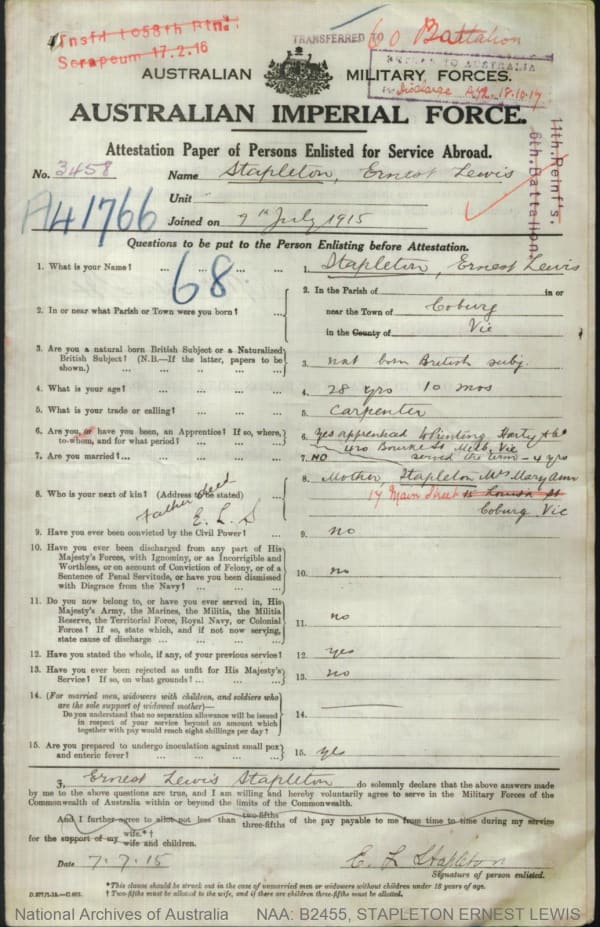 Trnsfd to 58th Btn.
Serapeum 17.2.16
TRANSFERRED TO 60 Battalion
RETURN TO AUSTRALIA
Discharge 18.10.17
AUSTRALIAN MILITARY FORCES.
AUSTRALIAN IMPERIAL FORCE.
11th. Reinf's.
6th. Battalion.
Attestation Paper of Persons Enlisted for Service Abroad.
No. 3458 Name Stapleton, Ernest Lewis
Unit
A41766 Joined on 7th July 1915
Questions to be put to the Person Enlisting before Attestation.
68
1. What is your Name? ... ... ... ... 1. Stapleton, Ernest Lewis
2. In or near what Parish or Town were you born? ... 2. In the Parish of in or
near the Town of Coburg
in the County of Vic
3. Are you a natural born British Subject or a Naturalized
British Subject? (N.B.—If the latter, papers to be
shown.) ... ... ... ... 3. nat born British subj.
4. What is your age? ... ... ... ... 4. 28 yrs 10 mos
5. What is your trade or calling? ... ... ... 5. Carpenter
6. Are you, or have you been, an Apprentice? If so, where,
to whom, and for what period? ... ... ... 6. Yes apprenticed Harty & Co
470 Bourke St Melb. Vic
7. Are you married? ... ... ... ... 7. NO served the term - 4 yrs
8. Who is your next of kin? (Address to be stated) ... 8. Mother, Stapleton Mrs Mary Ann
17 Main Street Louisa St
Coburg Vic
Father dead
E. L. S
9. Have you ever been convicted by the Civil Power? ... 9. no
10. Have you ever been discharged from any part of His
Majesty's Forces, with Ignominy, or as Incorrigible and
Worthless, or on account of Conviction of Felony, or of a
Sentence of Penal Servitude, or have you been dismissed
with Disgrace from the Navy? ... ... ... 10. no
11. Do you now belong to, or have you ever served in, His
Majesty's Army, the Marines, the Militia, the Militia
Reserve, the Territorial Force, Royal Navy, or Colonial
Forces? If so, state which, and if not now serving,
state cause of discharge ... ... ... 11. no
12. Have you stated the whole, if any, of your previous service? 12. yes
13. Have you ever been rejected as unfit for His Majesty's
Service? If so, on what grounds? ... ... ... 13. no
14. (For married men, widowers with children, and soldiers who
are the sole support of widowed mother)—
Do you understand that no separation allowance will be issued
in respect of your service beyond an amount which
together with pay would reach eight shillings per day? 14.
15. Are you prepared to undergo inoculation against small pox
and enteric fever? ... ... ... ... 15. yes
I, Ernest Lewis Stapleton do solemnly declare that the above answers made
by me to the above questions are true, and I am willing and hereby voluntarily agree to serve in the Military Forces of the
Commonwealth of Australia within or beyond the limits of the Commonwealth.
And I further agree to allot not less than two-fifths
three-fifths of the pay payable to me from time to time during my service
for the support of my wife.*†
wife and children.
Date 7.7.15 E. L. Stapleton
Signature of person enlisted.
*This clause should be struck out in the case of unmarried men or widowers without children under 18 years of age.
† Two-fifths must be allotted to the wife, and if there are children three-fifths must be allotted.
National Archives of Australia NAA: B2455, STAPLETON ERNEST LEWIS